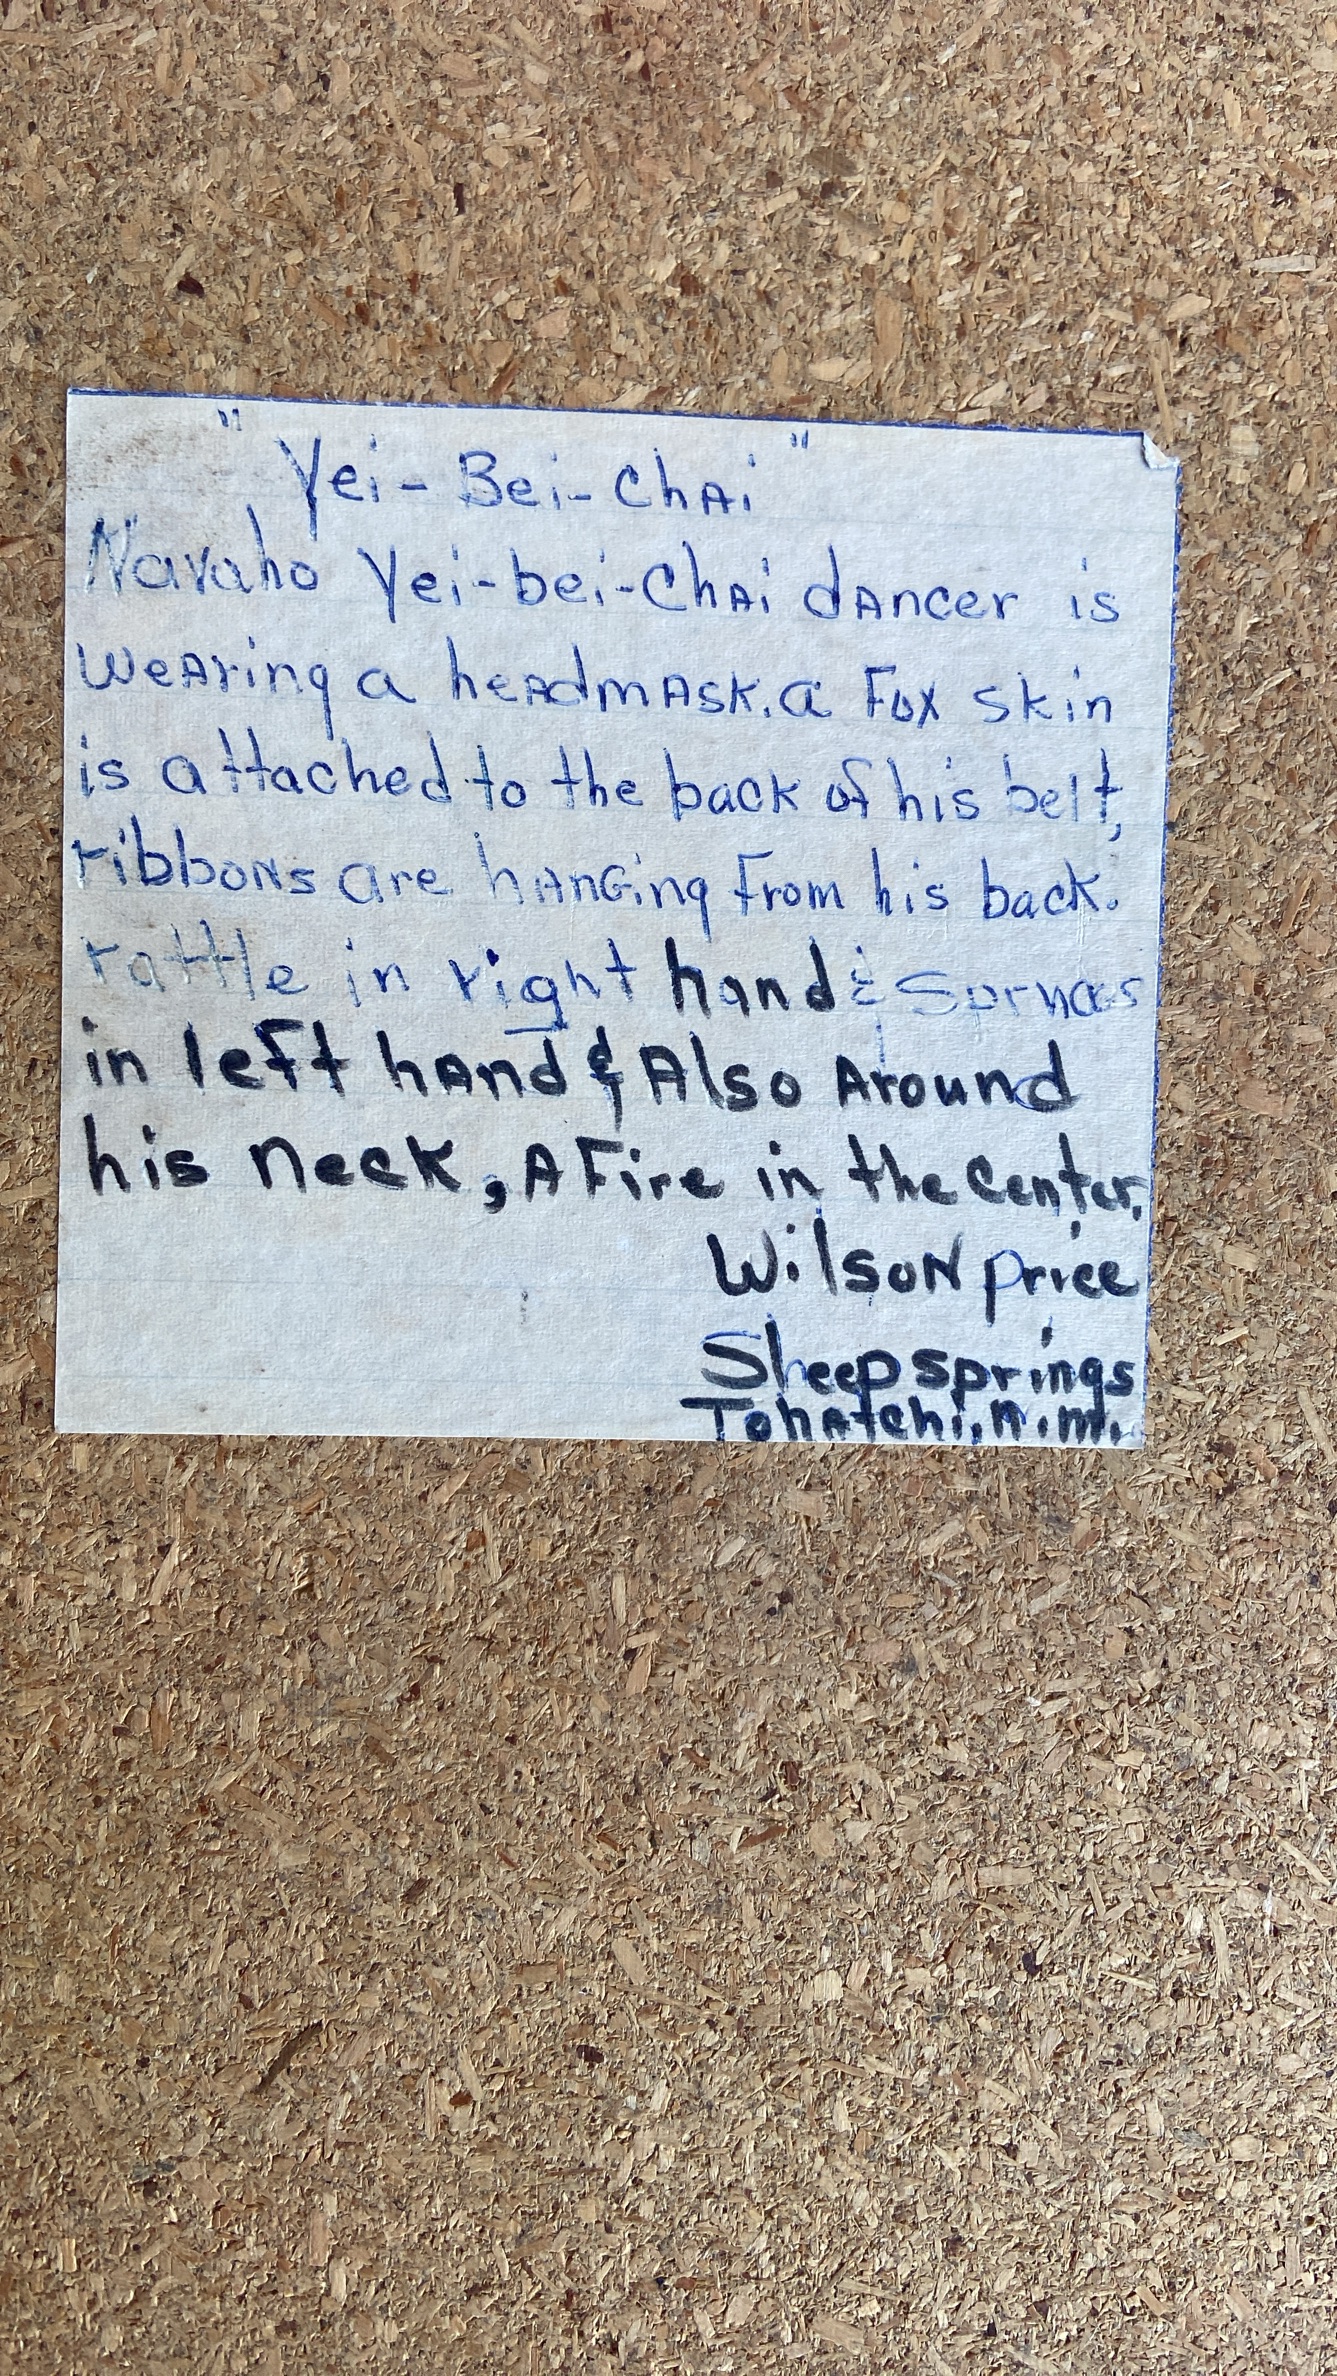 "Yei-Bei-ChAi"
Navaho Yei-bei-ChAi dAncer is
weAring a heAdmAsk. a Fox skin
is attached to the back of his belt,
ribbons are hAnGing From his back.
rattle in right hand &
in left hAnd & Also Around
his neck, A Fire in the Center.
WilsoN price
Sheepsprings
TohAtchi, n.m.